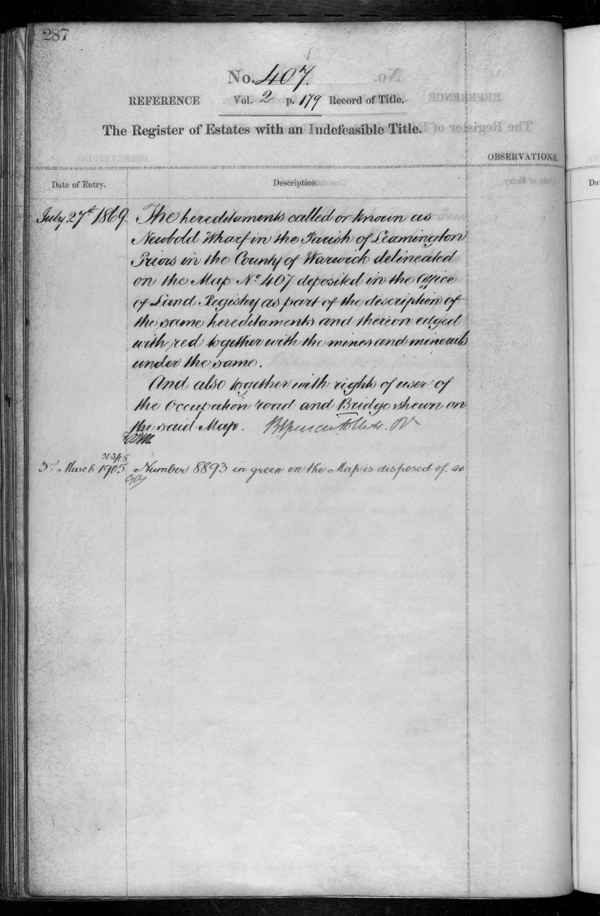 287
No. 407.
REFERENCE Vol. 2 p. 179 Record of Title.
The Register of Estates with an Indefeasible Title.
OBSERVATIONS.
Date of Entry. Description.
July 27th 1869. The hereditaments called or known as
Newbold Wharf in the Parish of Leamington
Priors in the County of Warwick delineated
on the Map No. 407 deposited in the Office
of Land Registry as part of the description of
the same hereditaments and thereon edged
with red together with the mines and minerals
under the same.
And also together with right of user of
the Occupation road and Bridge shewn on
the said Map.
March 1905 Number 8893 in green on the Map is disposed of